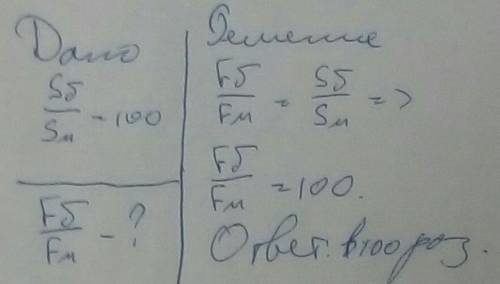 Дано
Sб/Sм - 100
Fб/Fм - ?
Решение
Fб/Fм = Sб/Sм =>
Fб/Fм = 100.
Ответ. в 100 раз.